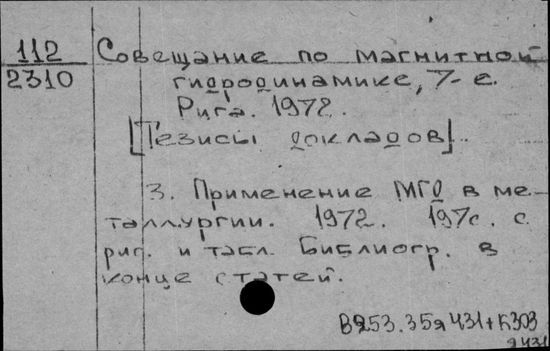 112
2310
Совещание по магнитной
гидродинамике, 7-е.
Рига. 1972.
[Тезисы докладов].
3. Применение МГД в ме-
таллургии. 1972. 197с. с
рис. и табл. Библиогр. в
конце статей.
В253.35я431+К303
я431